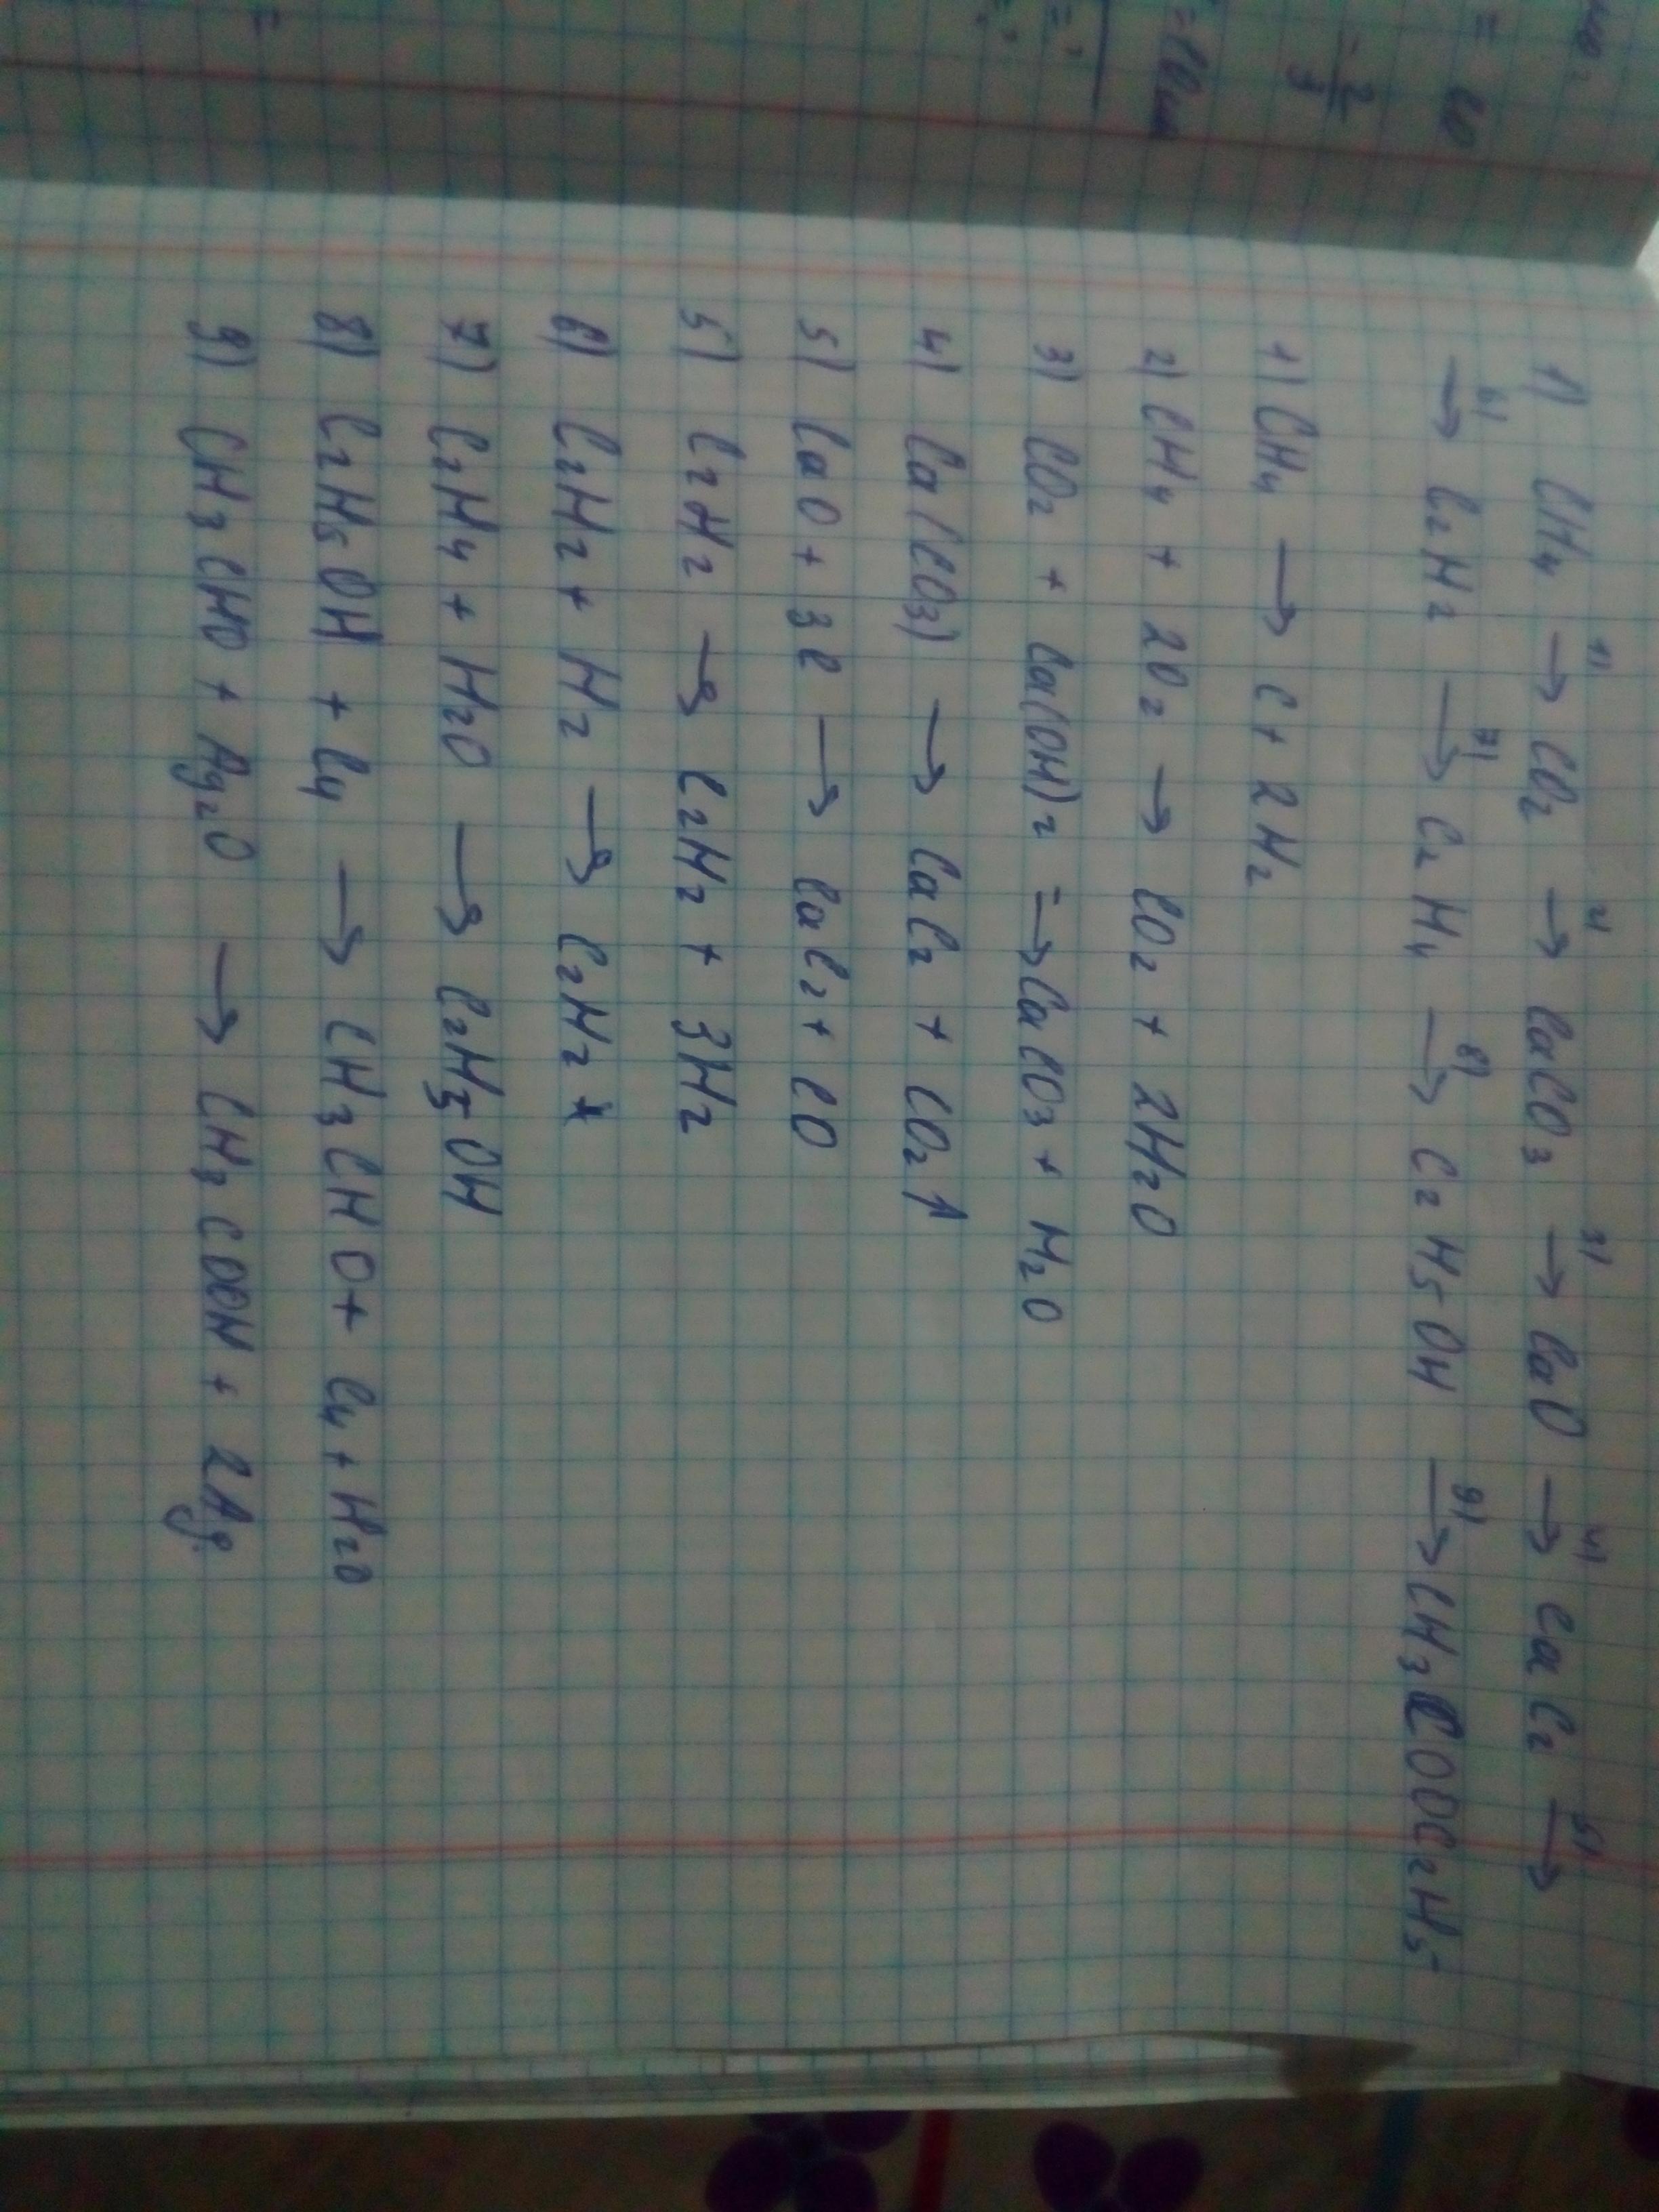 1) CH4 →1) CO2 →2) CaCO3 →3) CaO →4) CaC2 →5)
→6) C2H2 →7) C2H4 →8) C2H5OH →9) CH3COOC2H5
1) CH4 → C + 2H2
2) CH4 + 2O2 → CO2 + 2H2O
3) CO2 + Ca(OH)2 =→ CaCO3 + H2O
4) Ca(CO3) → CaC2 + CO2↑
5) CaO + 3C → CaC2 + CO
5) C2H2 → C2H2 + 3H2
6) C2H2 + H2 → C2H2
7) C2H4 + H2O → C2H5OH
8) C2H5OH + Cu → CH3CHO + Cu + H2O
9) CH3CHO + Ag2O → CH3COOH + 2Ag
= 10
- 2/3
= ?
= ?
=